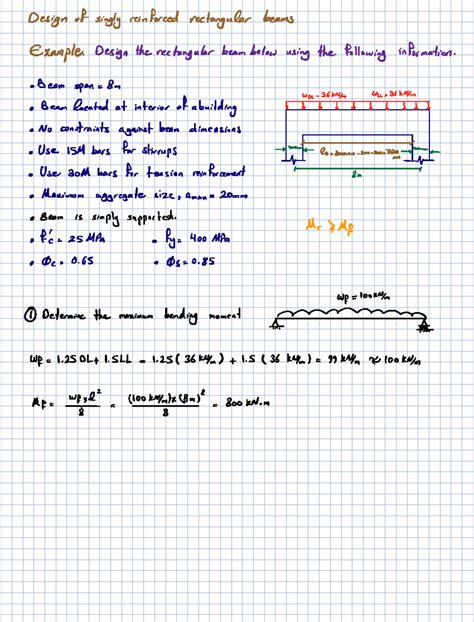 Design of singly reinforced rectangular beams
Example. Design the rectangular beam below using the following information.
• Beam span = 8m
• Beam located at interior of a building
• No constraints against beam dimensions
• Use 15M bars for stirrups
• Use 30M bars for tension reinforcement
• Maximum aggregate size, amax = 20mm
• Beam is simply supported.
• f'c = 25 MPa • fy = 400 MPa
• Φc = 0.65 • Φs = 0.85
WDL = 36 kN/m WLL = 36 kN/m
8m
Mr ≥ Mf
① Determine the maximum bending moment
Wf = 100 kN/m
Wf = 1.25 DL + 1.5 LL = 1.25 ( 36 kN/m ) + 1.5 ( 36 kN/m ) = 99 kN/m ≈ 100 kN/m
Mf = wf × l² / 8 = (100 kN/m) × (8m)² / 8 = 800 kN.m